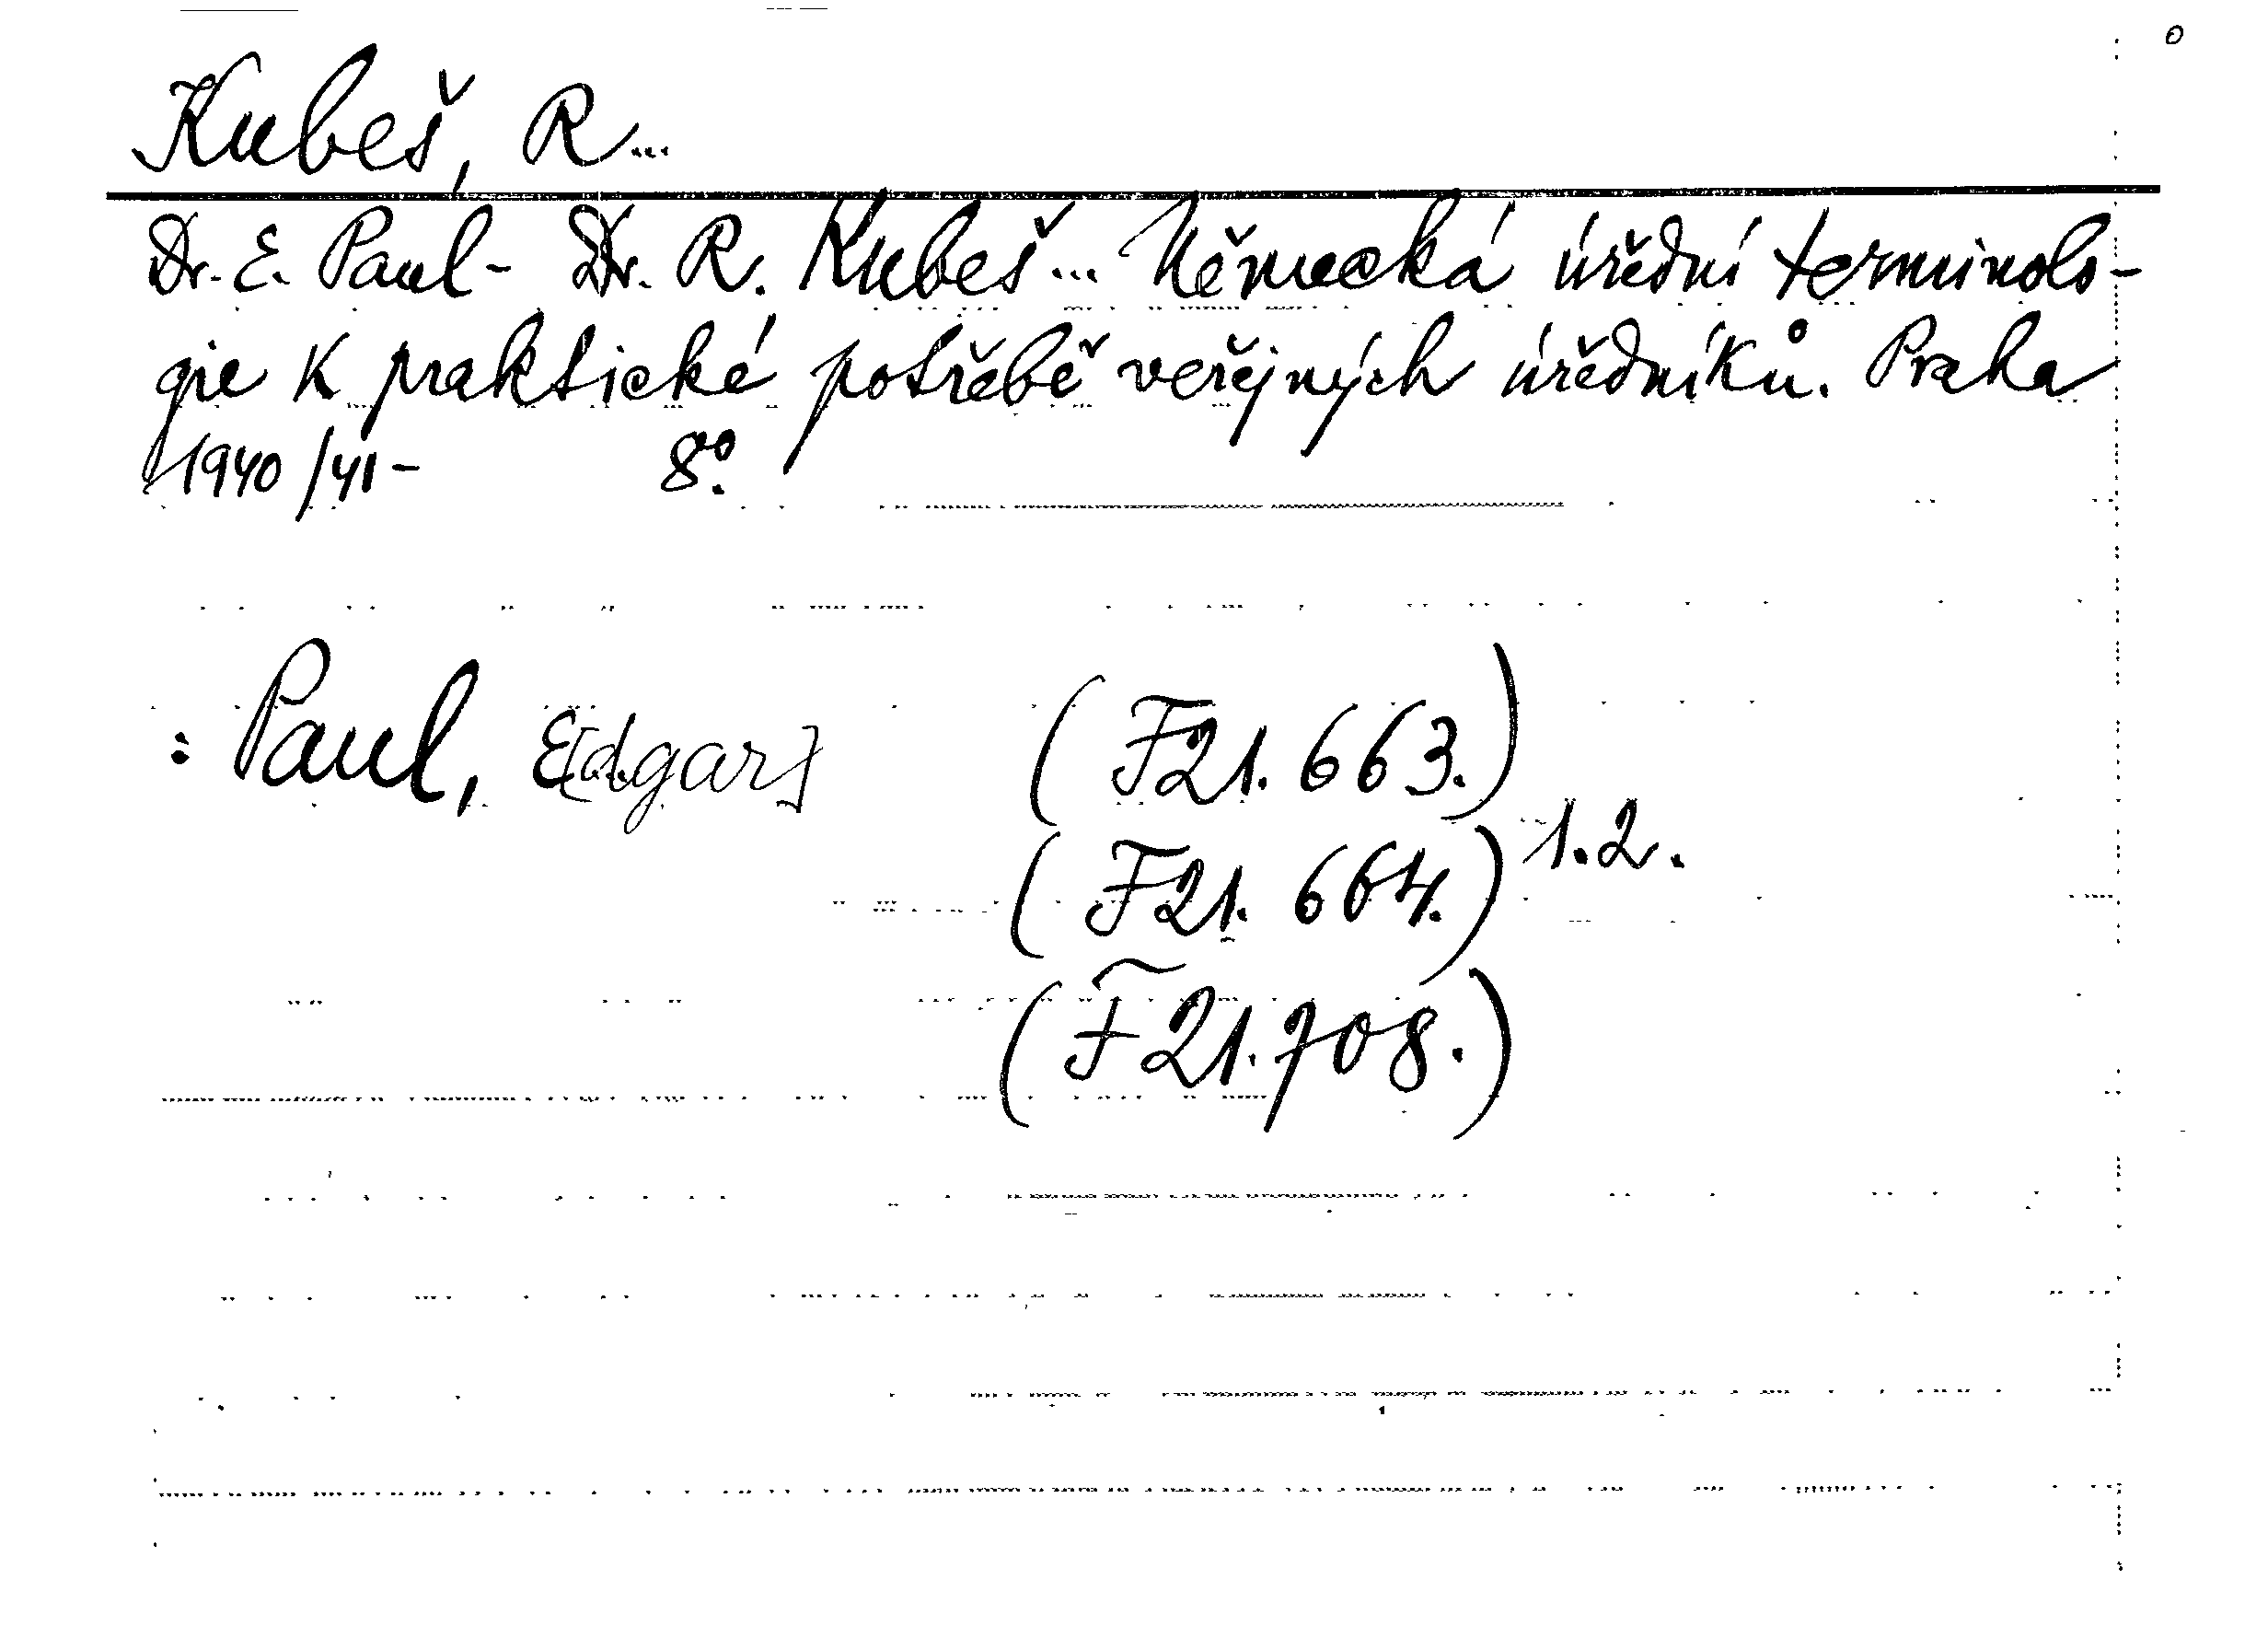 Kubeš, R...
Dr. E. Paul - Dr. R. Kubeš... Německá úřední terminolo-
gie k praktické potřebě veřejných úředníků. Praha
1940/41- 8°.
: Paul, E[dgar]
(F21.663.)
(F21.664.) 1.2.
(F21.708.)